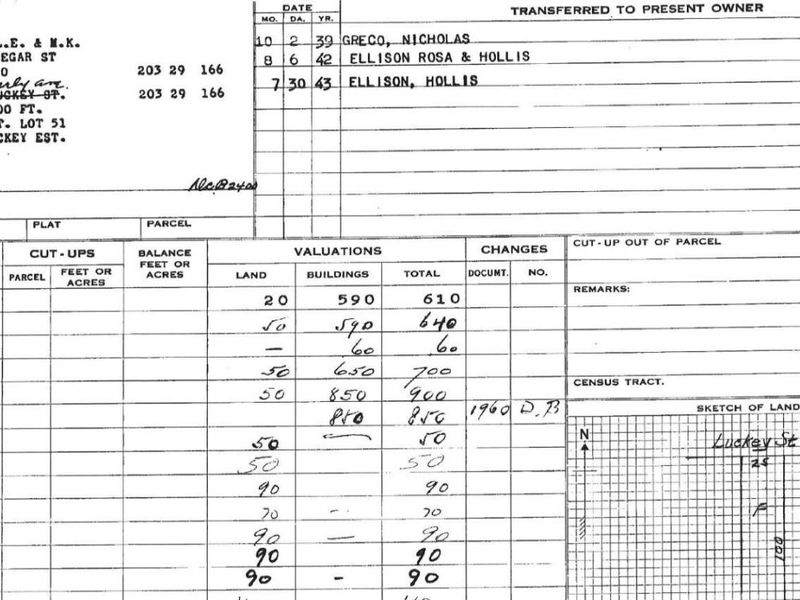 DATE
TRANSFERRED TO PRESENT OWNER
MO. DA. YR.
L.E. & M.K.
10 2 39 GRECO, NICHOLAS
EGAR ST
8 6 42 ELLISON ROSA & HOLLIS
O 203 29 166
7 30 43 ELLISON, HOLLIS
UCKEY ST. 203 29 166
00 FT.
T. LOT 51
CKEY EST.
PLAT PARCEL
CUT-UPS
BALANCE FEET OR ACRES
VALUATIONS
CHANGES
CUT-UP OUT OF PARCEL
PARCEL FEET OR ACRES
LAND BUILDINGS TOTAL DOCUMT. NO.
REMARKS:
20 590 610
50 590 640
— 60 60
50 650 700
CENSUS TRACT.
50 850 900
850 850 1960 D.B
SKETCH OF LAND
50 — 50
N
Luckey St
50 50
25
90 90
70 - 70
F
90 — 90
100
90 90
90 - 90